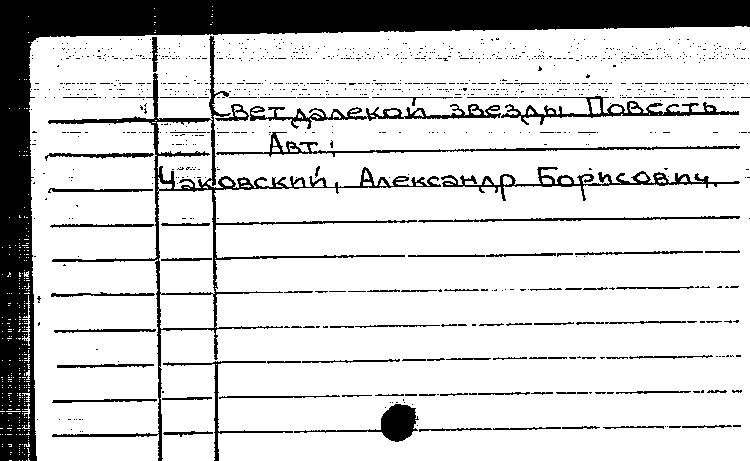 Свет далекой звезды Повесть
Авт.:
Чаковский, Александр Борисович.